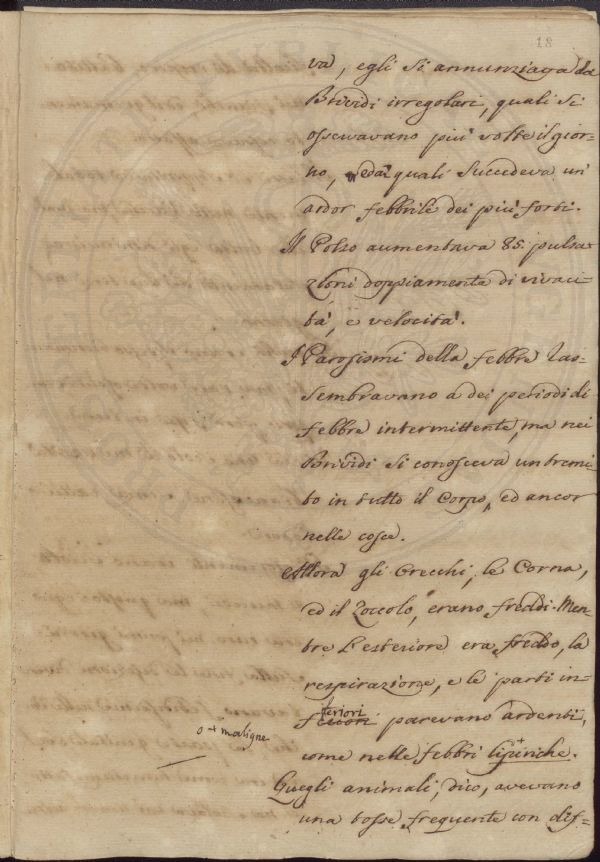 18
va, egli si annunziava da
Brividi irregolari, quali si
osservavano piu' volte il gior=
no, edai quali succedeva un'
ardor febbrile dei piu' forti.
Il Polso aumentava 85. pulsa=
zioni doppiamente di vivaci=
ta', e velocita'.
I Parosismi della febbre ras=
sembravano a dei periodi di
febbre intermittente, ma nei
Brividi si conosceva un tremi=
to in tutto il Corpo, ed ancor
nelle cosce.
Allora gli Orecchi, le Corna,
ed il Zoccolo, erano freddi. Men=
tre l'esteriore era freddo, la
respirazione, e le parti in=
teriori
parevano ardenti,
o + maligne
come nelle febbri +
Quegli animali, dico, avevano
una tosse frequente con dif=